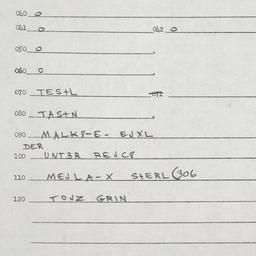 040 0
041 0 042 0
050 0
060 0
070 TEStL 072
080 TAStN
090 MALK8-E- EJXL
DER
100 UNT3R REJC8
110 MEJLA-X StERL(306
120 TOJZ GRIN